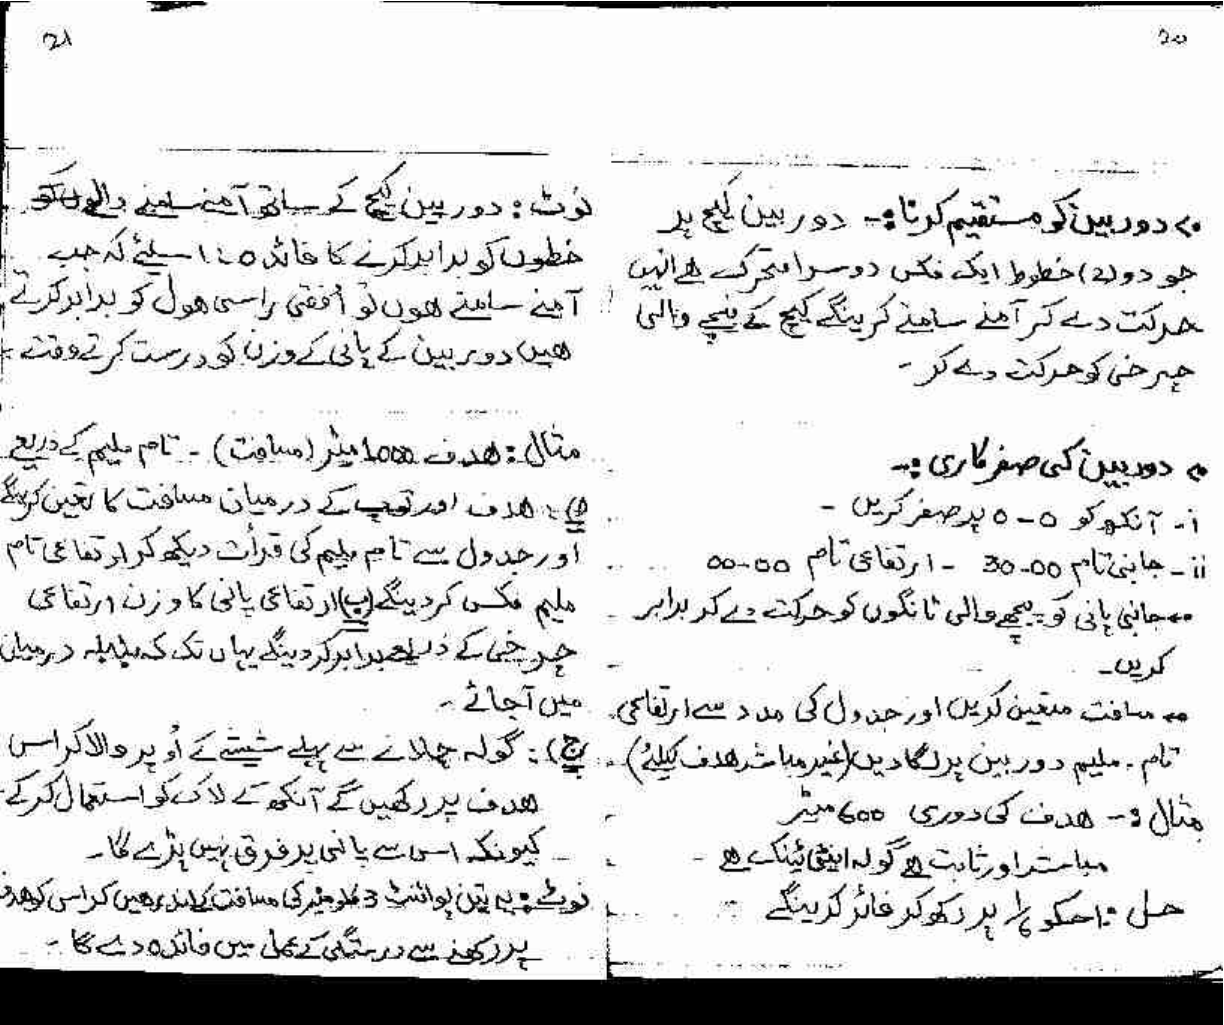 20
دوربین کو مستقیم کرنا:- دوربین کیج پر
جو دو(2) خطوط ایک فکس دوسرا متحرک ہے انہیں
حرکت دے کر آمنے سامنے کرینگے کیج کے نیچے والی
چرخی کو حرکت دے کر -
دوربین کی صفر کاری :-
i- آنکھ کو 0-0 پر صفر کریں -
ii- جانبی تام 00-30 - ارتفاعی تام 00-00
جانبی پانی کو پیچھے والی ٹانگوں کو حرکت دے کر برابر
کریں -
مسافت متعین کریں اور جدول کی مدد سے ارتفاعی
تام . ملیم دوربین پر لگا دیں (غیر مباشر ھدف کیلئے)
مثال :- ھدف کی دوری 600 میٹر
مباشر اور ثابت ہے گولہ اینٹی ٹینک ہے -
حل : پر رکھ کر فائر کرینگے
21
نوٹ : دوربین کیج کے ساتھ آمنے سامنے والے کو
خطوں کو برابر کرنے کا فائدہ اسلیئے کہ جب
آمنے سامنے ھوں تو اُفقی راسی ھول کو برابر کرتے
ھیں دوربین کے پانی کے وزن کو درست کرتے وقت -
مثال : ھدف 1000 میٹر (مسافت) - تام ملیم کے ذریعے
: ھدف اور توپ کے درمیان مسافت کا تعین کرینگے
اور جدول سے تام ملیم کی قرأت دیکھ کر ارتفاعی تام
ملیم فکس کر دینگے (ب) ارتفاعی پانی کا وزن ارتفاعی
چرخی کے ذریعے برابر کر دینگے یہاں تک کہ بلبلہ درمیان
میں آجائے -
(ج) : گولہ چلانے سے پہلے شیشے کے اُوپر والا کراس
ھدف پر رکھیں گے آنکھ کے لاک کو استعمال کر کے
کیونکہ اس سے پانی پر فرق نہیں پڑے گا -
نوٹ : یہ تین پوائنٹ 3 کلومیٹر کی مسافت کے اندر ھیں کراس کو ھدف
پر رکھنے سے درستگی کے عمل میں فائدہ دے گا -